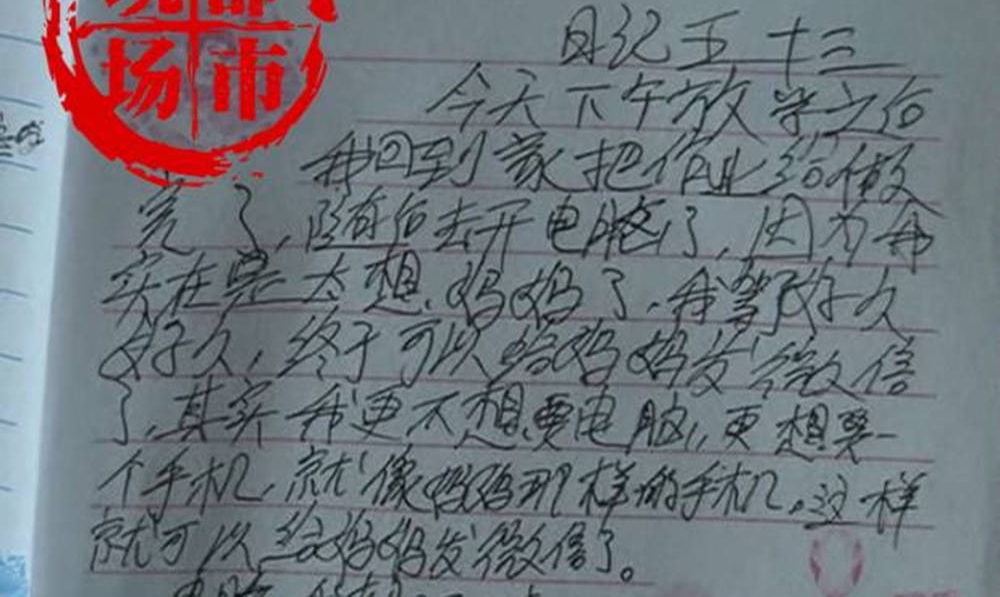 场市
日记五十三
今天下午放学之后
我回到家把作业给做
完了，随后去开电脑了，因为我
实在是太想妈妈了，我等了好久
好久，终于可以给妈妈发微信
了，其实我更不想要电脑，更想要一
个手机，就像妈妈那样的手机。这样
就可以给妈妈发微信了。